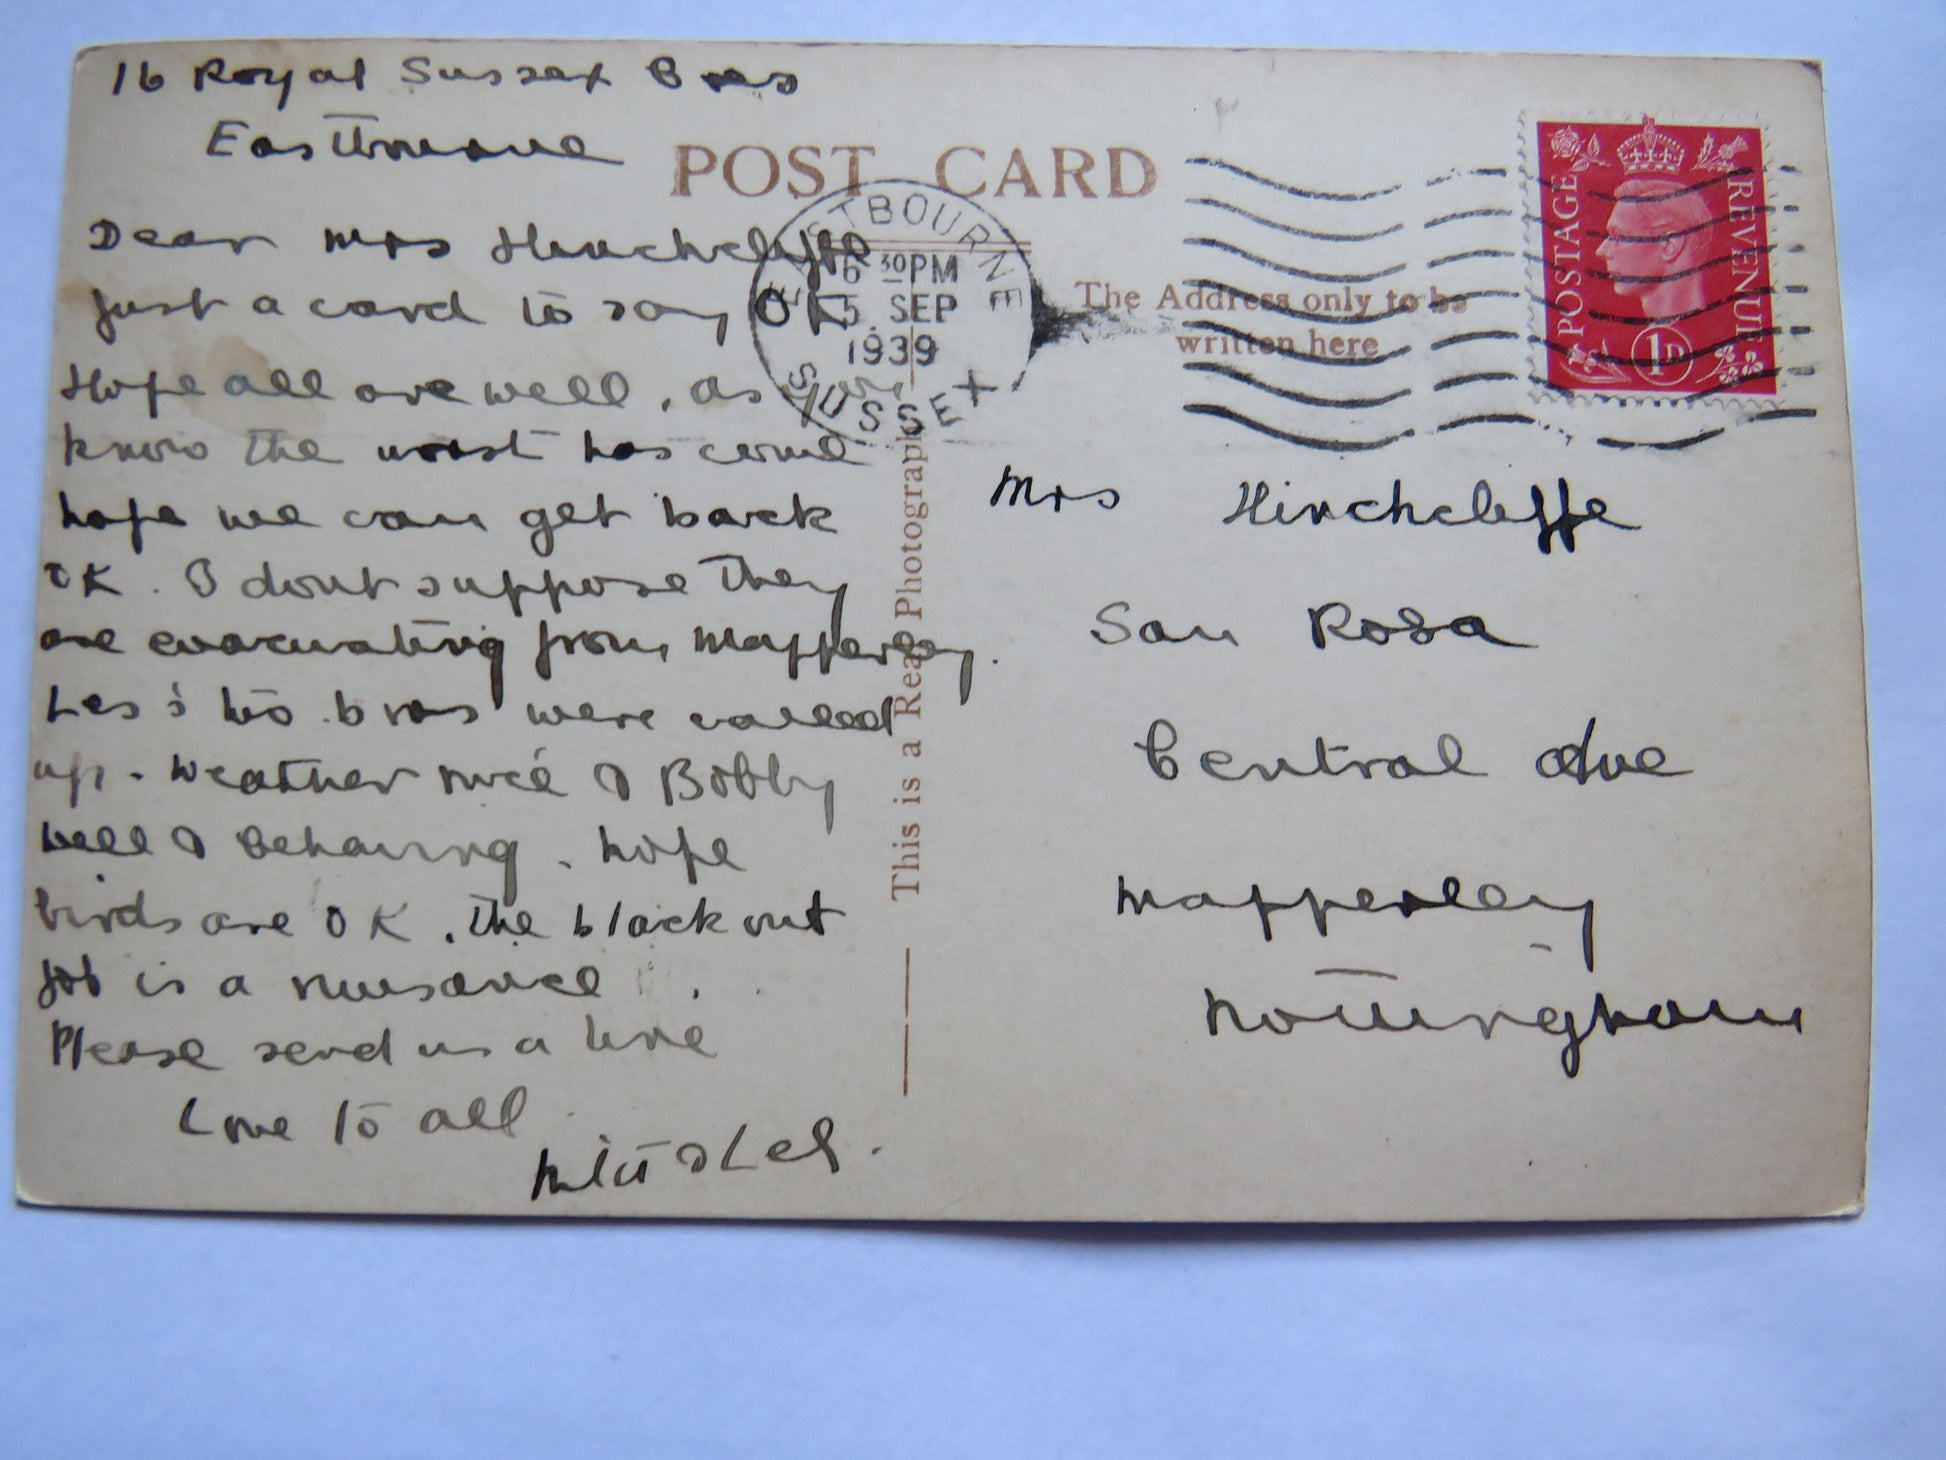 16 Royal Sussex Cres
Eastbourne
Dear Mrs Hinchcliffe
just a card to say OK
Hope all are well, as you
know the worst has come
hope we can get back
OK. I dont suppose they
are evacuating from Mapperley.
Les's two bros were called
up. Weather nice & Bobby
well & behaving. hope
birds are OK. The blackout
job is a nuisance.
Please send us a line
Love to all
& Les.
POST CARD
EASTBOURNE
6 30 PM
5 SEP
1939
SUSSEX
The Address only to be
written here
This is a Real Photograph
POSTAGE
REVENUE
1D
Mrs Hinchcliffe
San Rosa
Central Ave
Mapperley
Nottingham